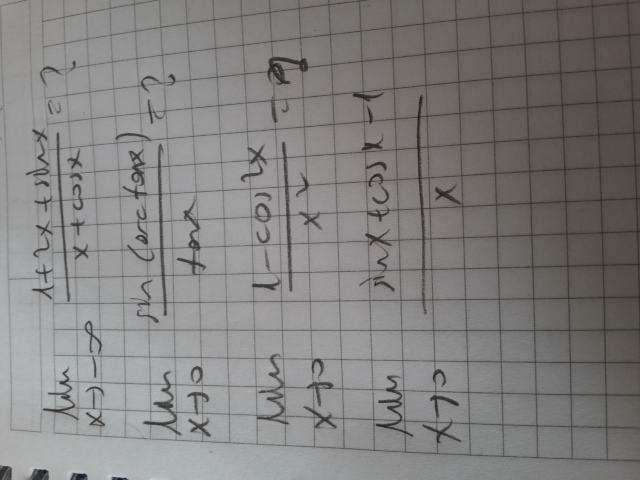 lim x→-∞ (1+2x+sinx)/(x+cosx) = ?
lim x→0 sin(arctanx)/tanx = ?
lim x→0 (1-cos2x)/x² = ?
lim x→0 (sinx+cosx-1)/x